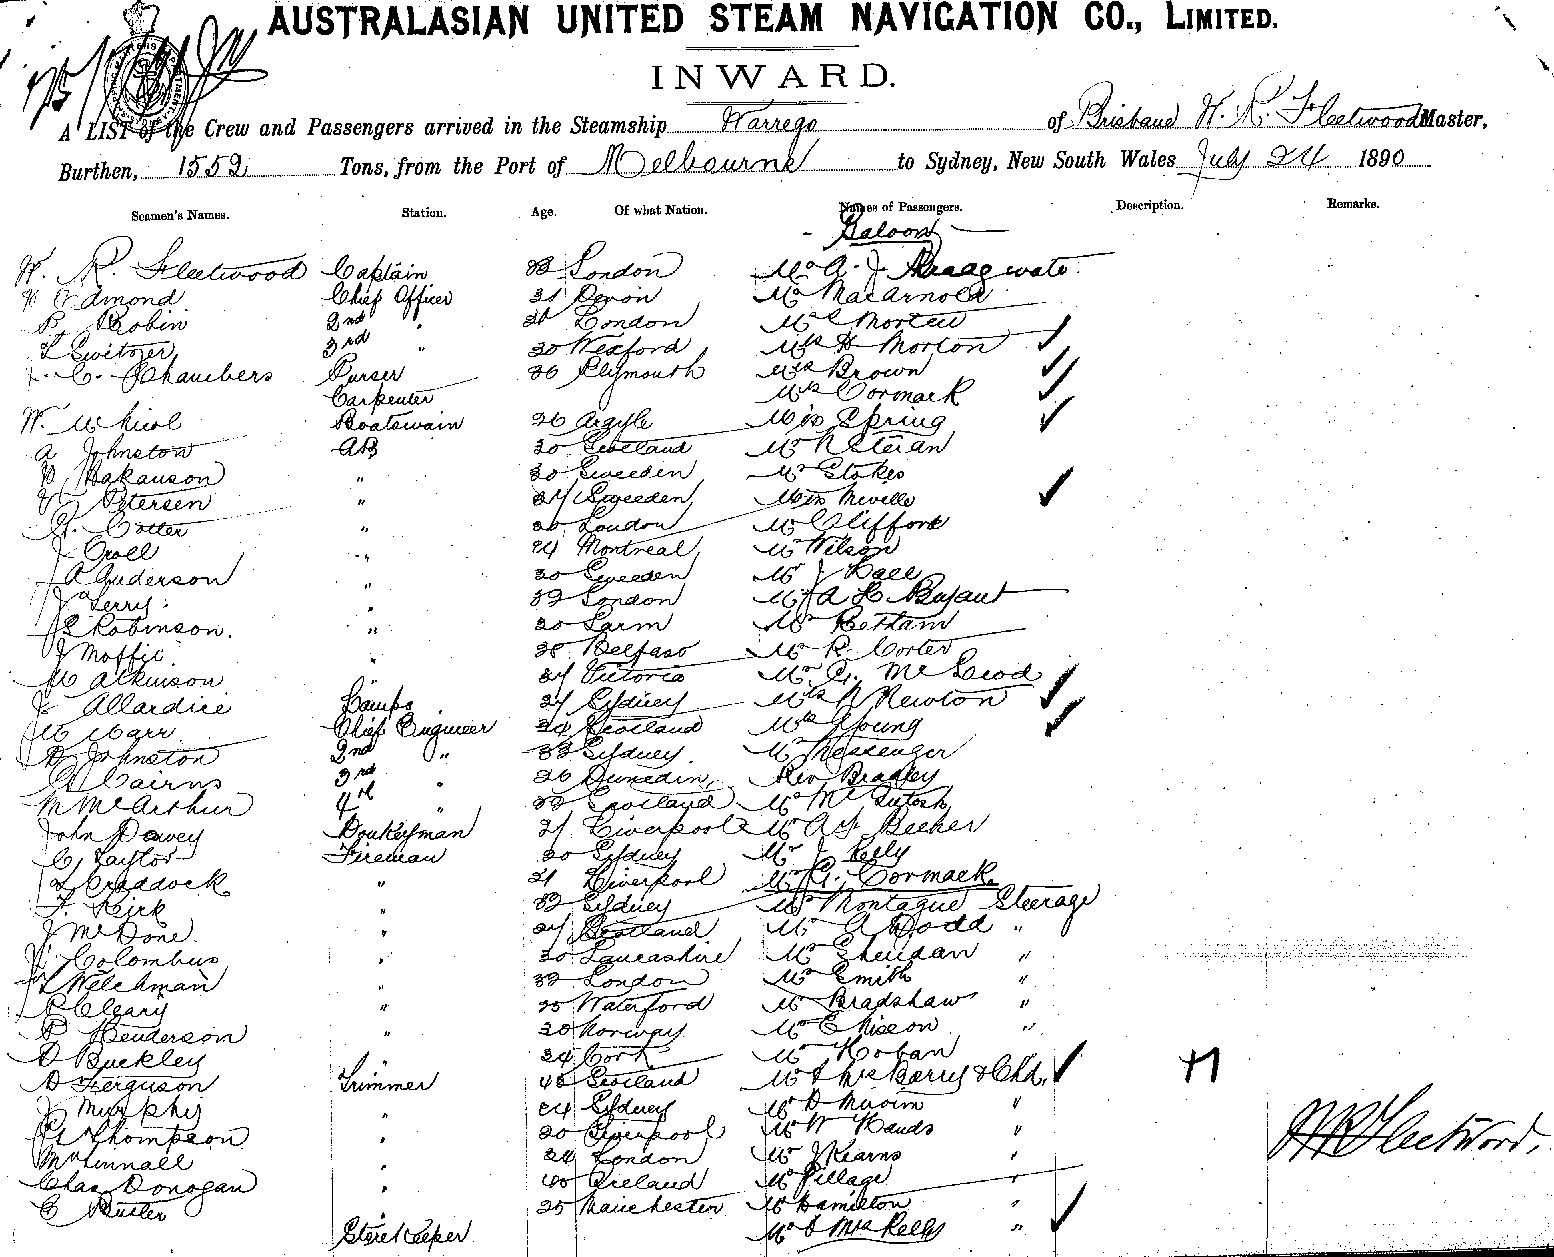 AUSTRALASIAN UNITED STEAM NAVIGATION CO., LIMITED.
INWARD.
A LIST of the Crew and Passengers arrived in the Steamship Warrego of Brisbane W. R. Fleetwood Master,
Burthen, 1552 Tons, from the Port of Melbourne to Sydney, New South Wales July 24 1890
Seamen's Names. Station. Age. Of what Nation. Names of Passengers. Description. Remarks.
Saloon
W. R. Fleetwood Captain London Mr A. J.
Edmond Chief Officer 31 Devon Mr MacArnold
Robin 2nd " London Mr Morton
Switzer 3rd " 30 Wexford Mrs H Morton
J. C. Chambers Purser 26 Plymouth Mrs Brown
Carpenter Mrs Cormack
W. McNicol Boatswain 26 Argyle Miss Spring
A Johnston AB 30 Scotland Mr
Hakanson " 30 Sweeden Mr Stokes
Petersen " 24 Sweeden Miss Neville
Cotter " 20 London Mr Clifford
J Croll " 24 Montreal Mr Wilson
A Anderson " 30 Sweeden Mr J Ball
J Terry " 32 London Mr A E Bryant
J S Robinson. " 20 Mr Botham
J Moffit " 38 Belfast Mr R. Corter
M Atkinson " 34 Victoria Mr G. McLeod
J Allardice Lamps 24 Sydney Mrs Newton
Carr Chief Engineer 34 Scotland Mrs Young
D Johnston 2nd " 33 Sydney Mr Messenger
G Cairns 3rd " 26 Dunedin Rev Bradley
M McArthur 4th " 32 Scotland Mr McIntosh
John Davey Donkeyman 21 Liverpool Mr A S Becher
C Taylor Fireman 30 Sydney Mr J Kelly
Craddock " 21 Liverpool Mr G. Cormack
F. Kirk " 32 Sydney Mr Montague Steerage
J McDone " 24 Scotland Mr A Dodd "
Colombus " 30 Lancashire Mr Sheridan "
Welchman " 32 London Mr Smith "
P Cleary " 25 Waterford Mr Bradshaw "
P Henderson " 30 Norway Mr "
D Buckley " 34 Cork Mr Hoban
D Ferguson Trimmer 42 Scotland Mr & Mrs Barry & Chd.
J Murphy " 24 Sydney Mr D "
Thompson " 20 Liverpool Mr W Hands "
" 24 London Mr J Kearns "
Chas Donogan " 40 Ireland Mr Pillage "
C Butler " 25 Manchester Mr Hamilton "
Storekeeper Mr & Mrs Kelly "
W R Fleetwood.